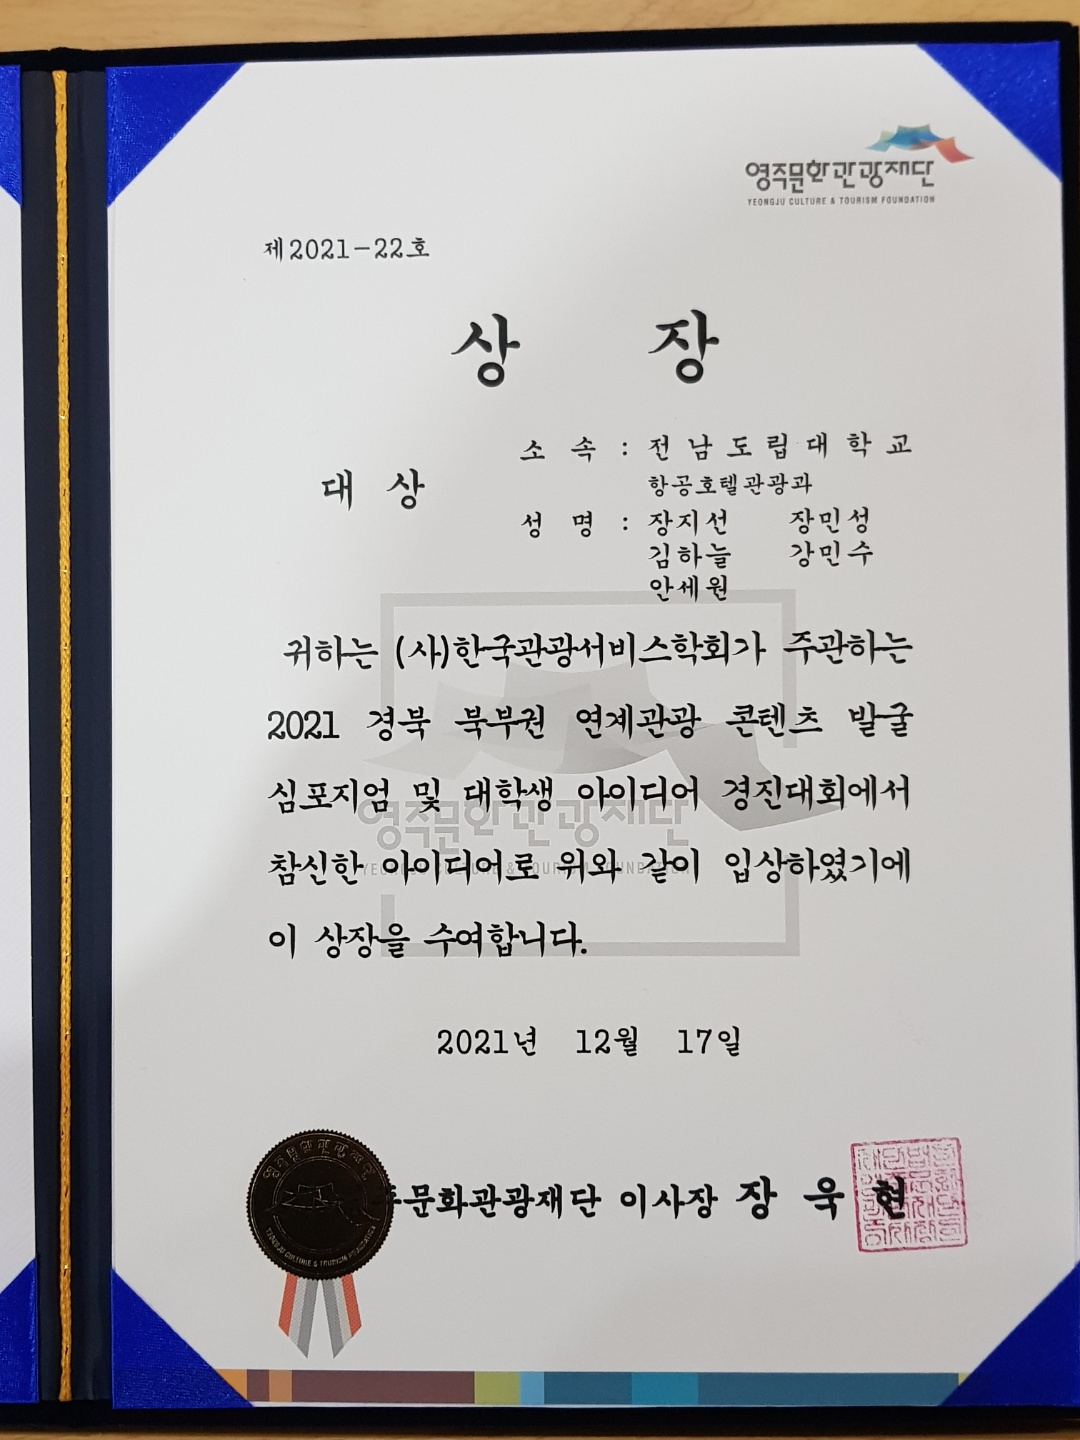 영주문화관광재단
YEONGJU CULTURE & TOURISM FOUNDATION
제2021-22호
상 장
대 상
소 속 : 전남도립대학교
항공호텔관광과
성 명 : 장지선 장민성
김하늘 강민수
안세원
귀하는 (사)한국관광서비스학회가 주관하는
2021 경북 북부권 연계관광 콘텐츠 발굴
심포지엄 및 대학생 아이디어 경진대회에서
참신한 아이디어로 위와 같이 입상하였기에
이 상장을 수여합니다.
영주문화관광재단
YEONGJU CULTURE & TOURISM FOUNDATION
2021년 12월 17일
영주문화관광재단
YEONGJU CULTURE & TOURISM FOUNDATION
주문화관광재단 이사장 장 욱 현